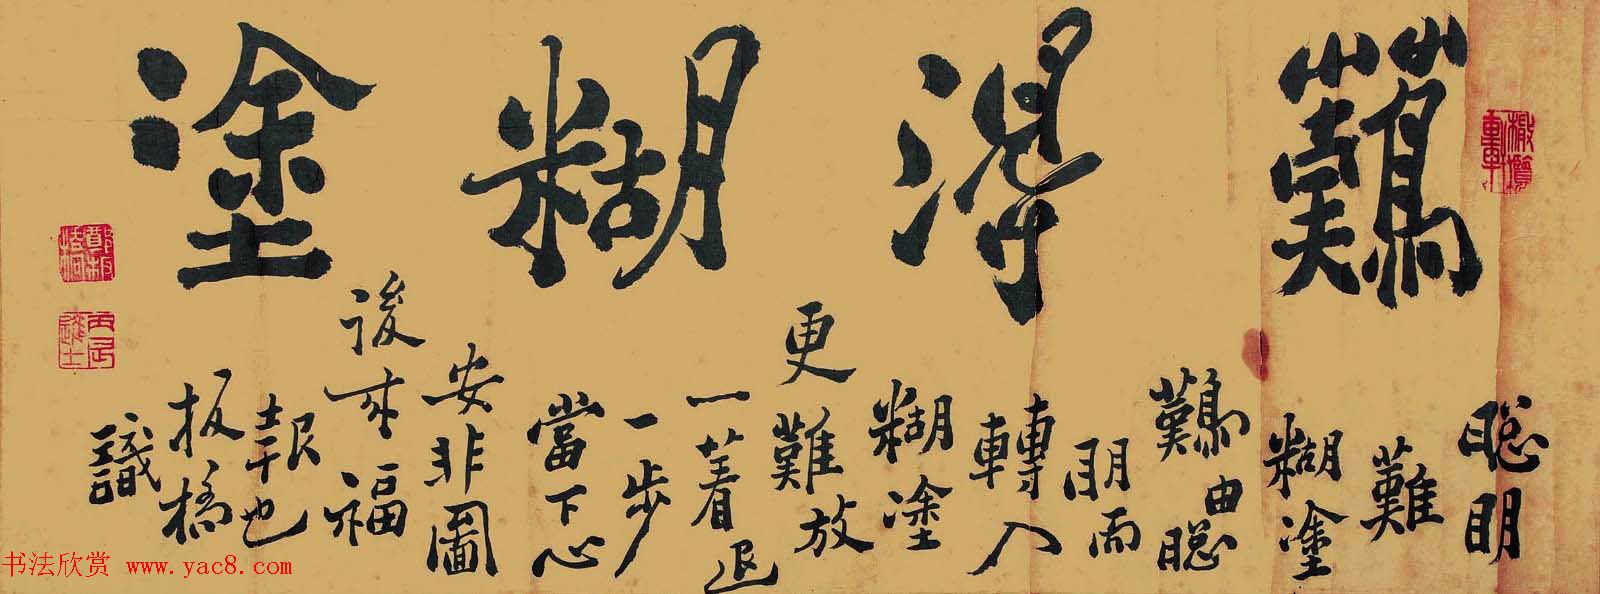 橄欖軒
難得糊塗
聰明
難
糊塗
難由聰
明而
轉入
糊塗
更難放
一着退
一步
當下心
安非圖
後来福
報也
板橋
識
丙辰進士
书法欣赏 www.yac8.com